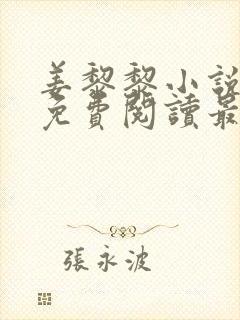 姜黎黎小說
免費閱讀最
張永波